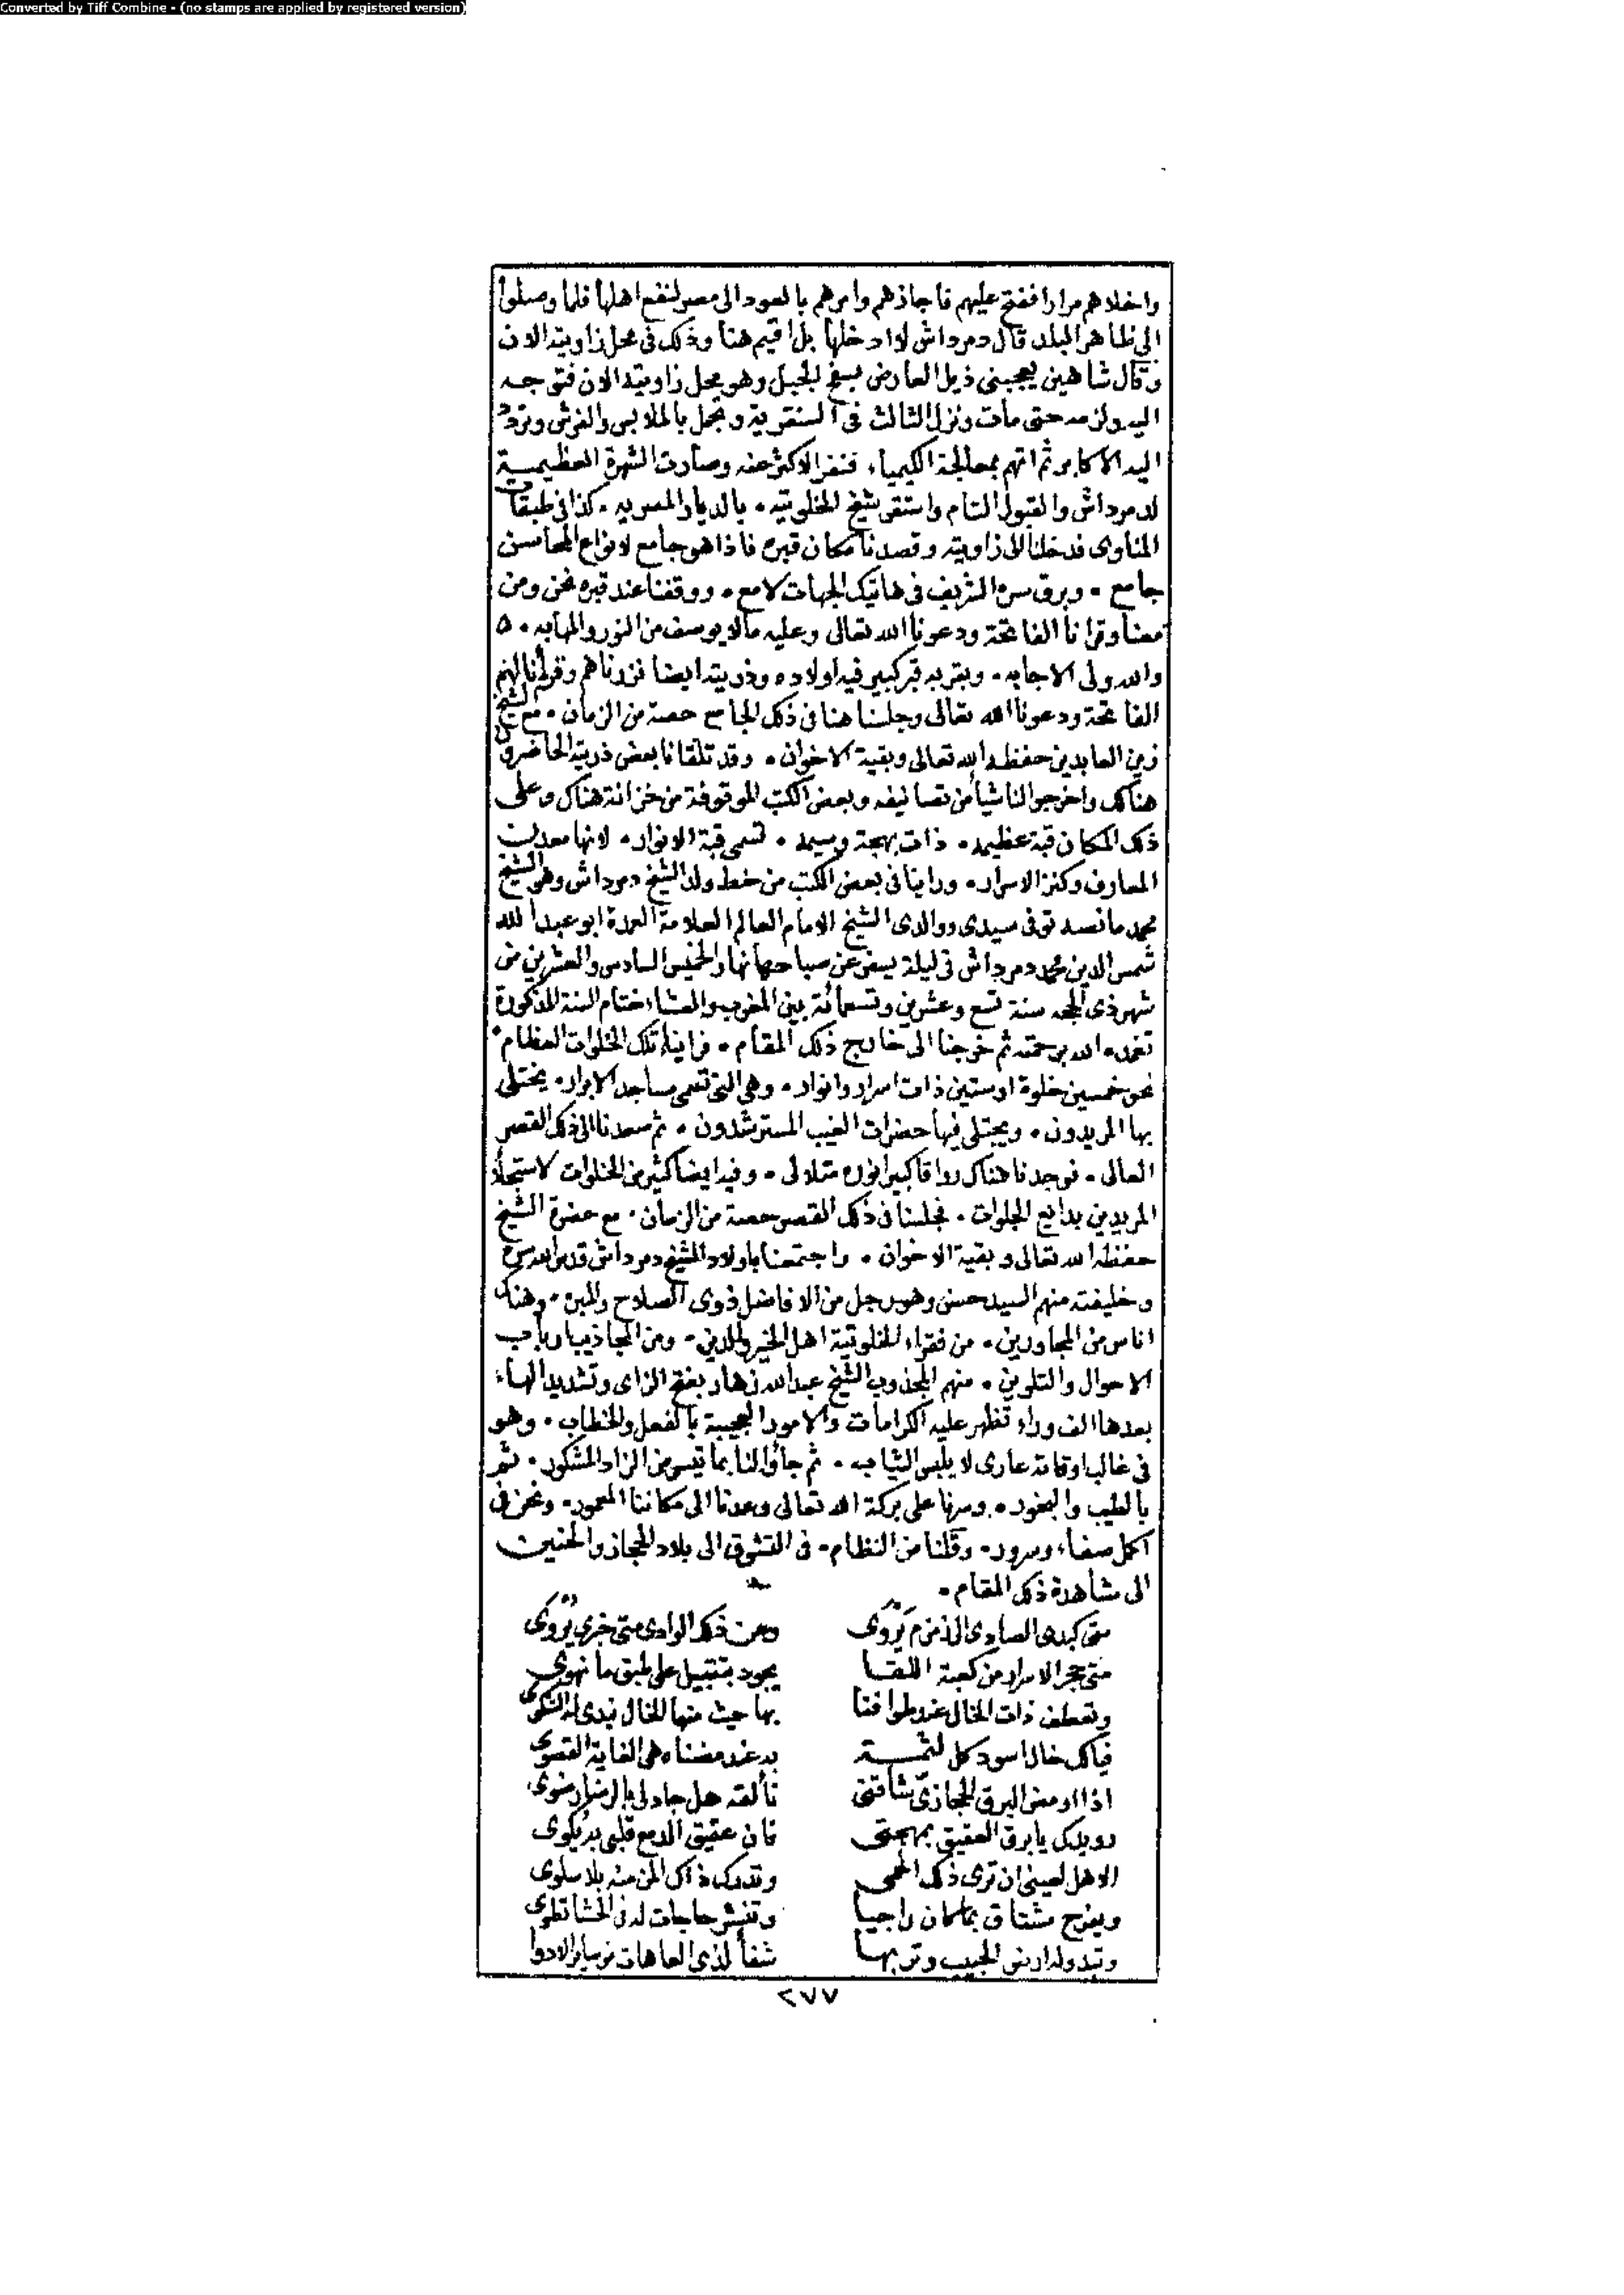 Converted by Tiff Combine - (no stamps are applied by registered version)
واخلاهم مرارا ففتح عليهم فاجازهم وامرهم بالعود الى مصر لنفع اهلها فلما وصلوا
الى ظاهر البلد قال دمرداش لا ادخلها بل اقيم هنا وذلك فى محل زاويته الان
وقال شاهين يعجبنى ذيل العارض بسفح الجبل وهو محل زاويته الان فتوجه
اليه ولزمه حتى مات ونزل الثالث فى السنقرية وتجمل بالملابس والفرش وتردد
اليه الاكابر ثم اتهم بمعالجة الكيمياء فنفر الاكثر عنه وصارت الشهرة العظيمة
لدمرداش والقبول التام واستقر شيخ الخلوتيه . بالديار المصريه . كذا فى طبقات
المناوى فدخلنا الى زاويته وقصدنا مكان قبره فاذا هو جامع لانواع المحاسن
جامع . وبرق سره الشريف فى هاتيك الجهات لامع . ووقفنا عند قبره نحن ومن
معنا وقرانا الفاتحة ودعونا الله تعالى وعليه مالا يوصف من النور والمهابه . ٥
والله ولى الاجابه . وبقربه قبر كبير فيه اولاده وذريته ايضا فزرناهم وقرأنا لهم
الفاتحة ودعونا الله تعالى وجلسنا هنا فى ذلك الجامع حصة من الزمان . مع الشيخ
زين العابدين حفظه الله تعالى وبقية الاخوان . وقد تلقانا بعض ذريته الحاضرين
هناك واخرجوا لنا شيأ من تصانيفه وبعض الكتب الموقوفة من خزانة هناك وعلى
ذلك المكان قبة عظيمه . ذات بهجة وسيمه . تسمى قبة الانوار . لانها معدن
المعارف وكنز الاسرار . وراينا فى بعض الكتب من خط ولد الشيخ دمرداش وهو الشيخ
محمد ما نصه توفى سيدى ووالدى الشيخ الامام العالم العلامة العمدة ابو عبد الله
شمس الدين محمد دمرداش فى ليلة يسفر عن صباحها نهار الخميس السادس والعشرين من
شهر ذى الحجه سنة تسع وعشرين وتسعمائة بين المغرب والعشاء ختام السنة المذكورة
تغمده الله برحمته ثم خرجنا الى خارج ذلك المقام . فراينا تلك الخلوات العظام .
نحو خمسين خلوة او ستين ذات اسرار وانوار . وهى التى تسمى مساجد الابرار . يختلى
بها المريدون . ويجتلى فيها حضرات الغيب المسترشدون . ثم صعدنا الى ذلك القصر
العالى . فوجدنا هناك رواقا كبيرا نوره متلالى . وفيه ايضا كثير من الخلوات لاستجلاء
المريدين بدايع الجلوات . فجلسنا فى ذلك القصر حصة من الزمان . مع حضرة الشيخ
حفظه الله تعالى وبقية الاخوان . واجتمعنا باولاد الشيخ دمرداش قدس الله سره
وخليفته منهم السيد حسن وهو رجل من الافاضل ذوى الصلاح والمبره . وهناك
اناس من المجاورين . من فقراء الخلوتية اهل الخير والدين . ومن المجاذيب ارباب
الاحوال والتلوين . منهم المجذوب الشيخ عبد الله زهار بفتح الزاى وتشديد الهاء
بعدها الف وراء تظهر عليه الكرامات والامور العجيبة بالفعل والخطاب . وهو
فى غالب اوقاته عارى لا يلبس الثياب . ثم جاؤا لنا بما تيسر من الزاد المشكور . ثم
بالطيب والبخور . وسرنا على بركة الله تعالى وعدنا الى مكاننا المعمور . ونحن فى
اكمل صفاء وسرور . وقلنا من النظام . فى التشوق الى بلاد الحجاز والحنين
الى مشاهدة ذلك المقام .
متى كبدى الصادى الى زمزم يروى ومن ذلك الوادى متى خبرى يروى
متى حجر الاسرار من كعبة اللقا يجود بتقبيل على طبق ما نهوى
وتعطف ذات الخال عند طوافنا بها حيث منها الخال نبدى له الشكوى
فيالك خالا اسود كل لثمة به عند مضناه هى الغاية القصوى
اذا اومض البرق الحجازى شاقنى تألقه هل جاد لى بالرضا رضوى
رويدك يا برق العقيق بمهجتى فان عقيق الدمع قلبى به يكوى
الا هل لعينى ان ترى ذلك الحمى وتدرك ذاك المن منه بلا سلوى
ويفرح مشتاق بما كان راجيا وتنشر حاجات لدى الحشا تطوى
وتبدو له ارض الحبيب وتربها شفأ لذى العاهات من سائر الادوا
٢٧٧